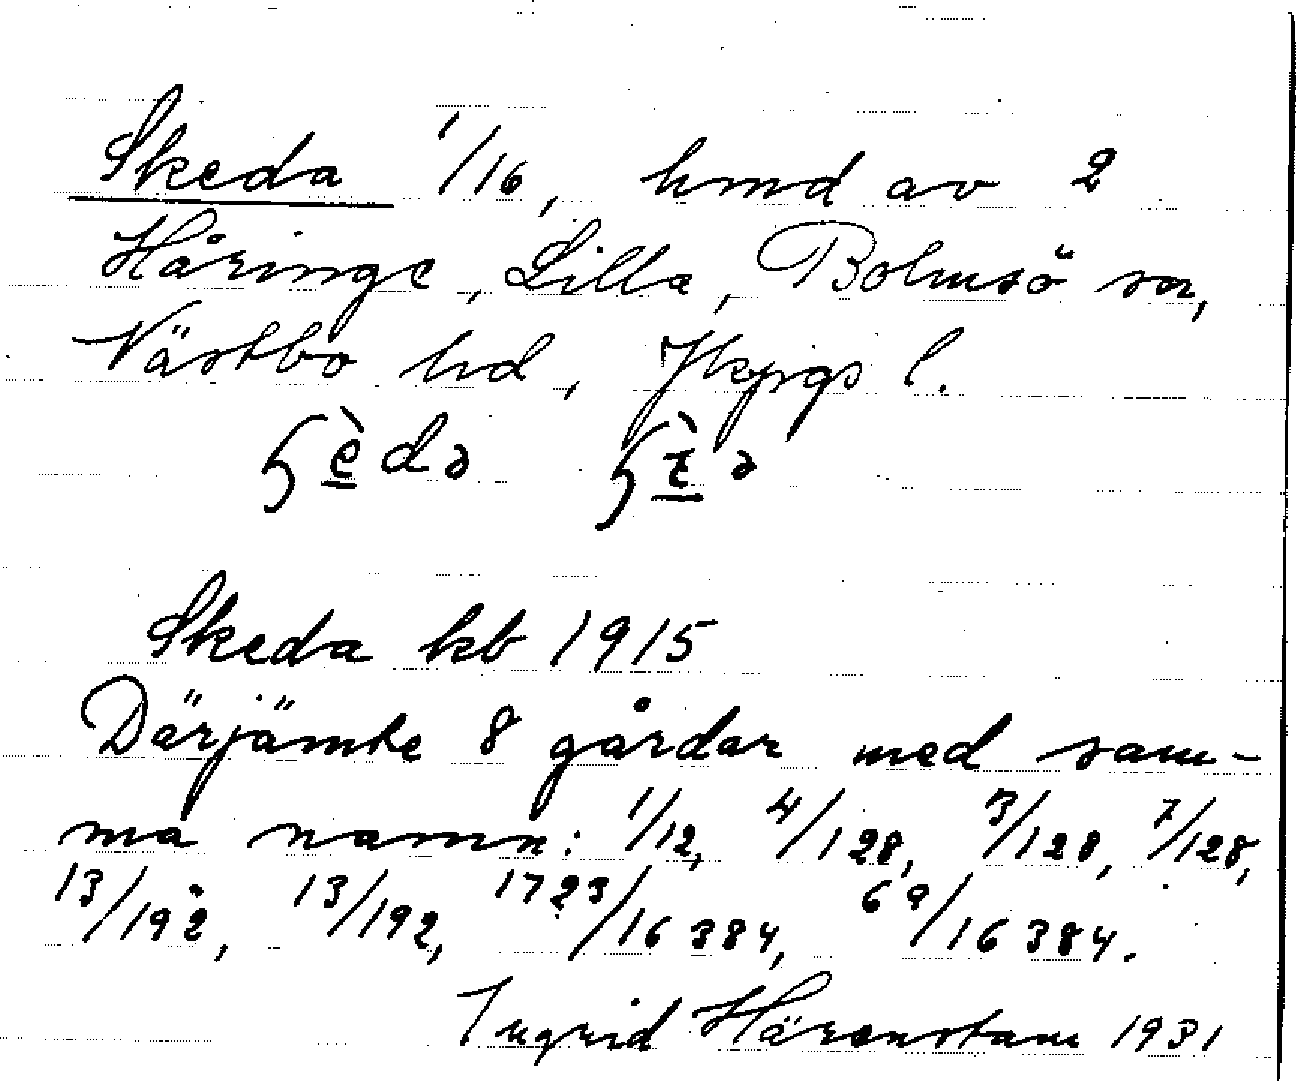 Skeda 1/16, hmd av 2
Håringe, Lilla, Bolmsö sn,
Västbo hd, Jkpgs l.
Skeda kb 1915
Därjämte 8 gårdar med sam-
ma namn: 1/12, 4/128, 3/128, 7/128,
13/192, 13/192, 1723/16 384, 69/16 384.
Ingrid Härenstam 1931